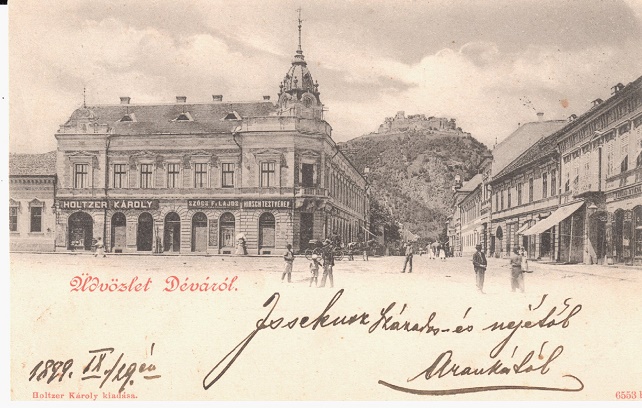 HOLTZER KÁROLY
SZŐCS F. LAJOS
HIRSCH TESTVÉREK
Üdvözlet Déváról.
Százados és nejétől
Arankától
1899. IX./19 én
Holtzer Károly kiadása.
6553